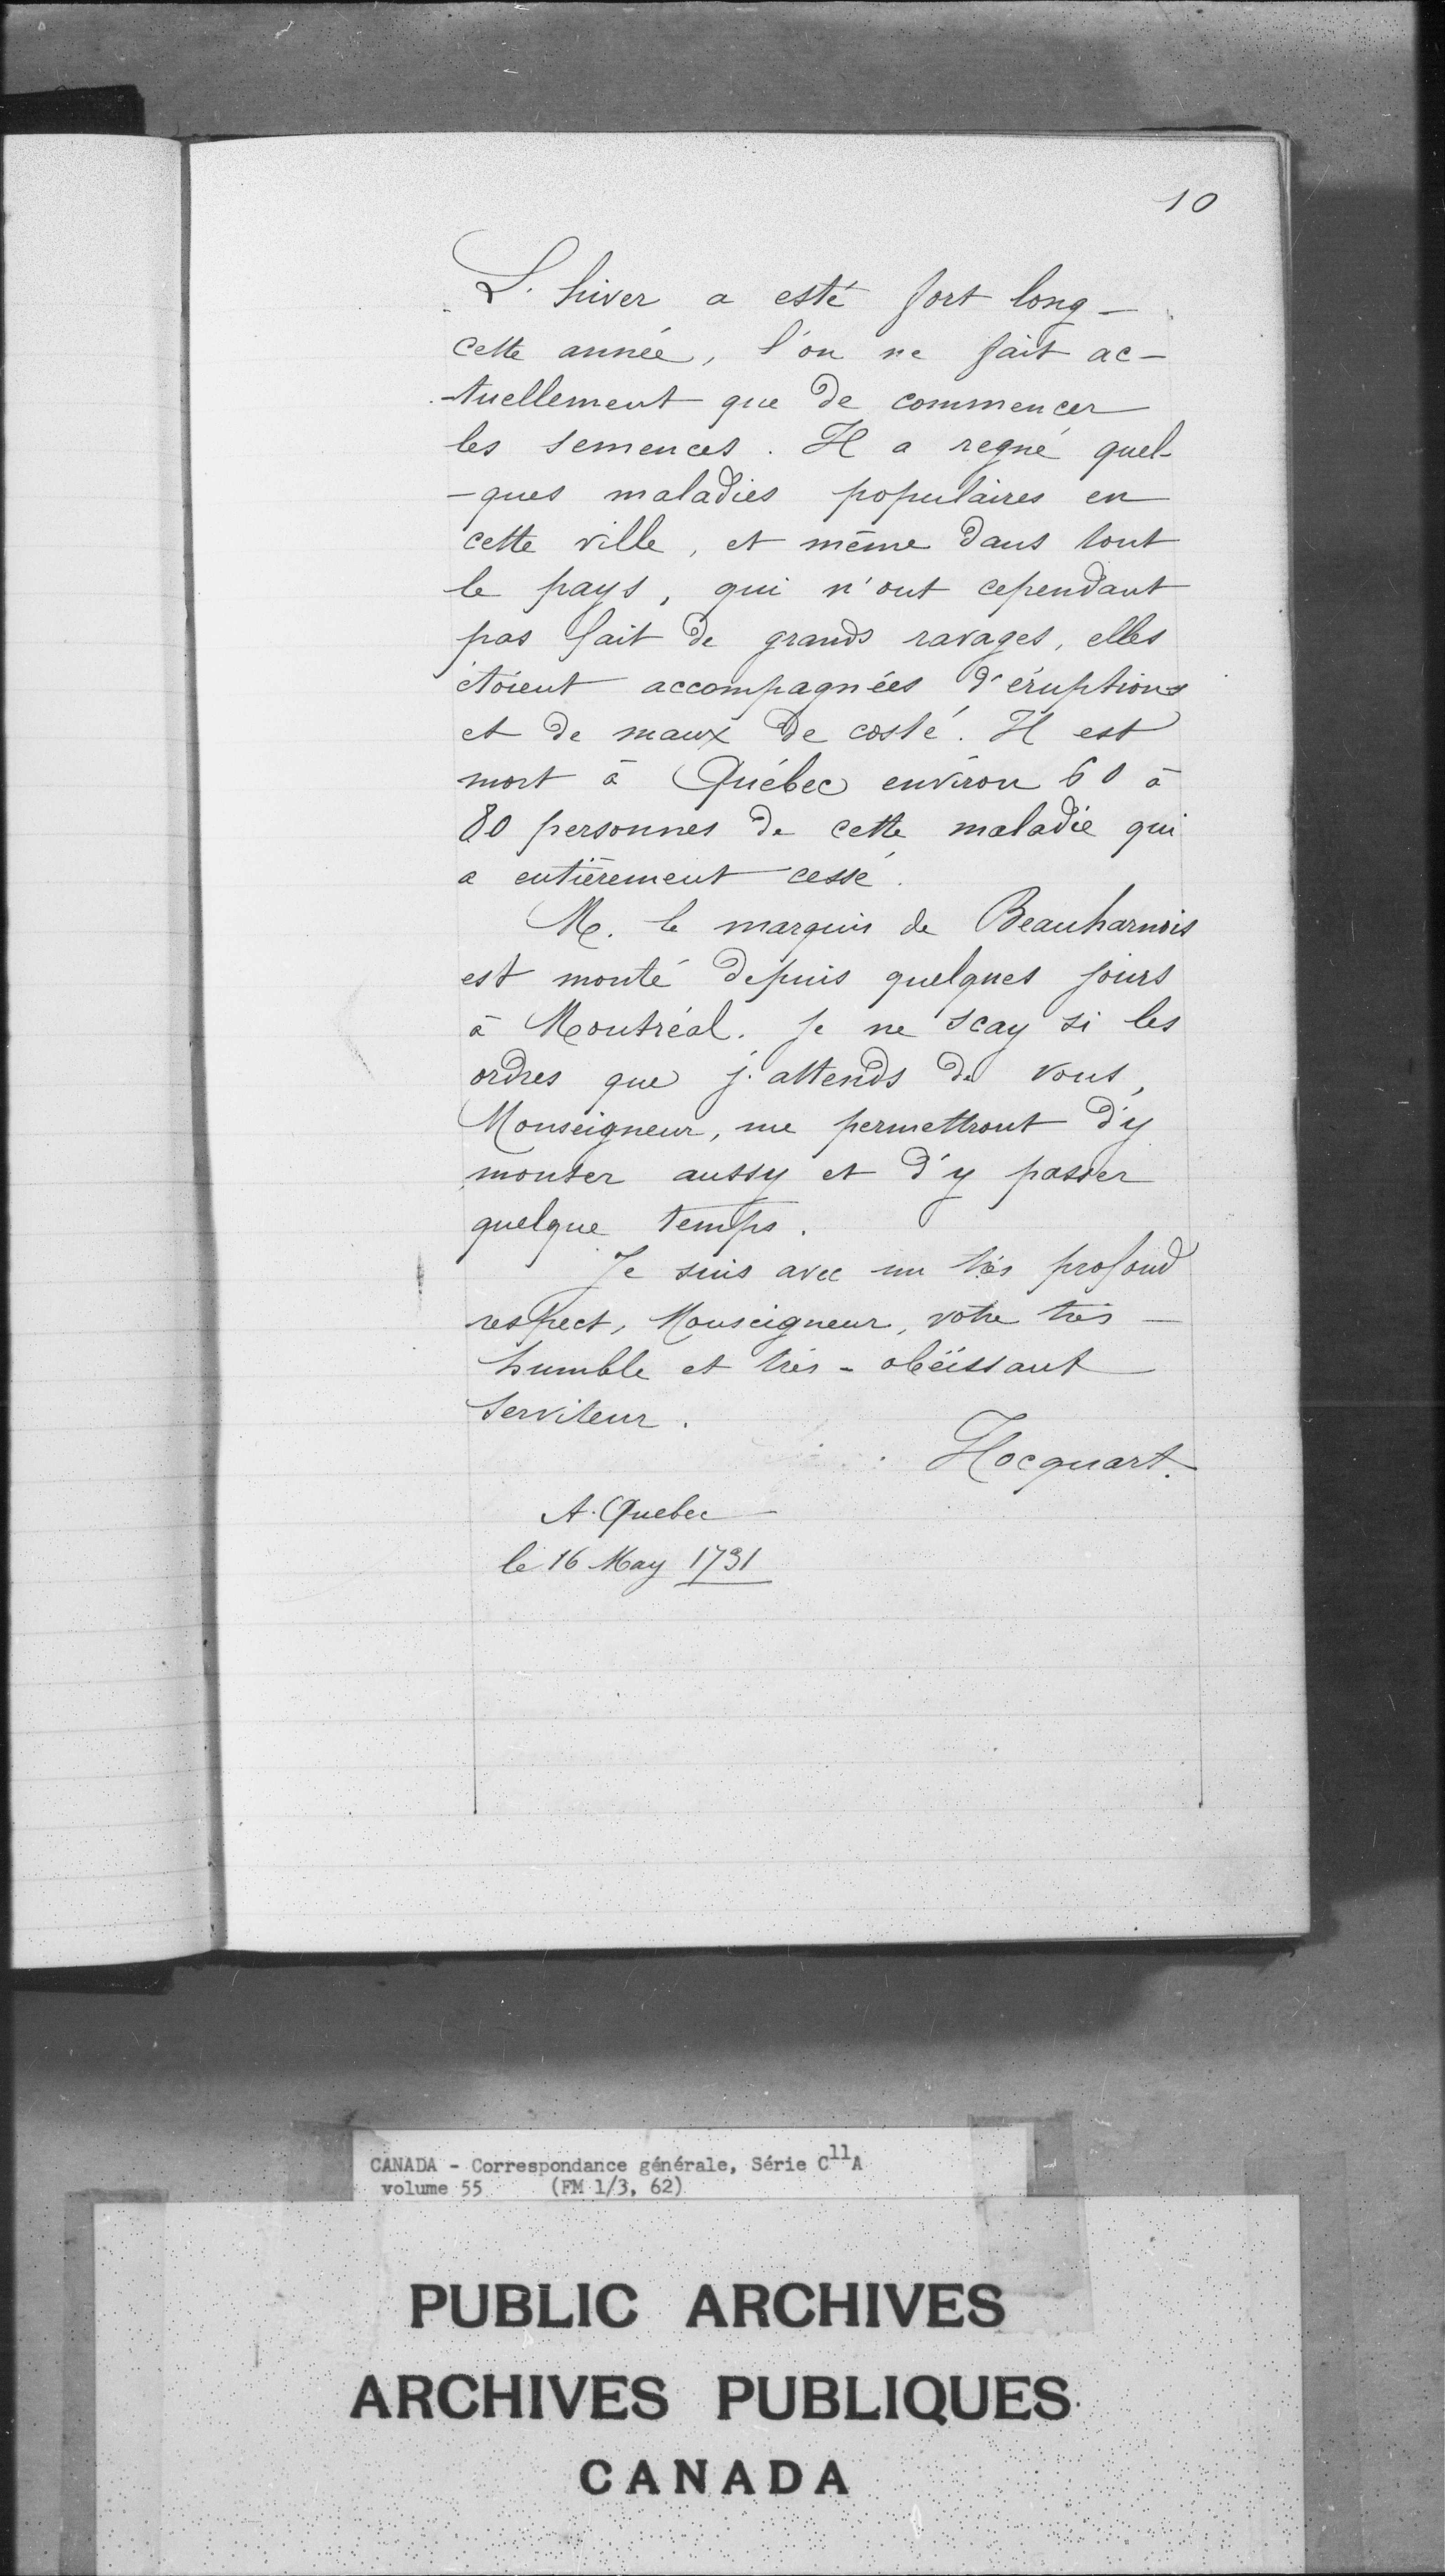 10
L'hiver a esté fort long -
cette année, l'on ne fait ac-
-tuellement que de commencer
les semences. Il a regné quel-
-ques maladies populaires en
cette ville, et même dans tout
le pays, qui n'ont cependant
pas fait de grands ravages, elles
étoient accompagnées d'éruptions
et de maux de costé. Il est
mort à Québec environ 60 à
80 personnes de cette maladie qui
a entièrement cessé.
M. le marquis de Beauharnois
est monté depuis quelques jours
à Montréal. Je ne scay si les
ordres que j'attends de vous,
Monseigneur, me permettront d'y
monter aussy et d'y passer
quelque temps.
Je suis avec un très profond
respect, Monseigneur, votre très -
humble et très-obëissant
serviteur.
Hocquart.
A. Quebec -
le 16 May 1731
CANADA - Correspondance générale, Série C11A
volume 55 (FM 1/3, 62)
PUBLIC ARCHIVES
ARCHIVES PUBLIQUES
CANADA